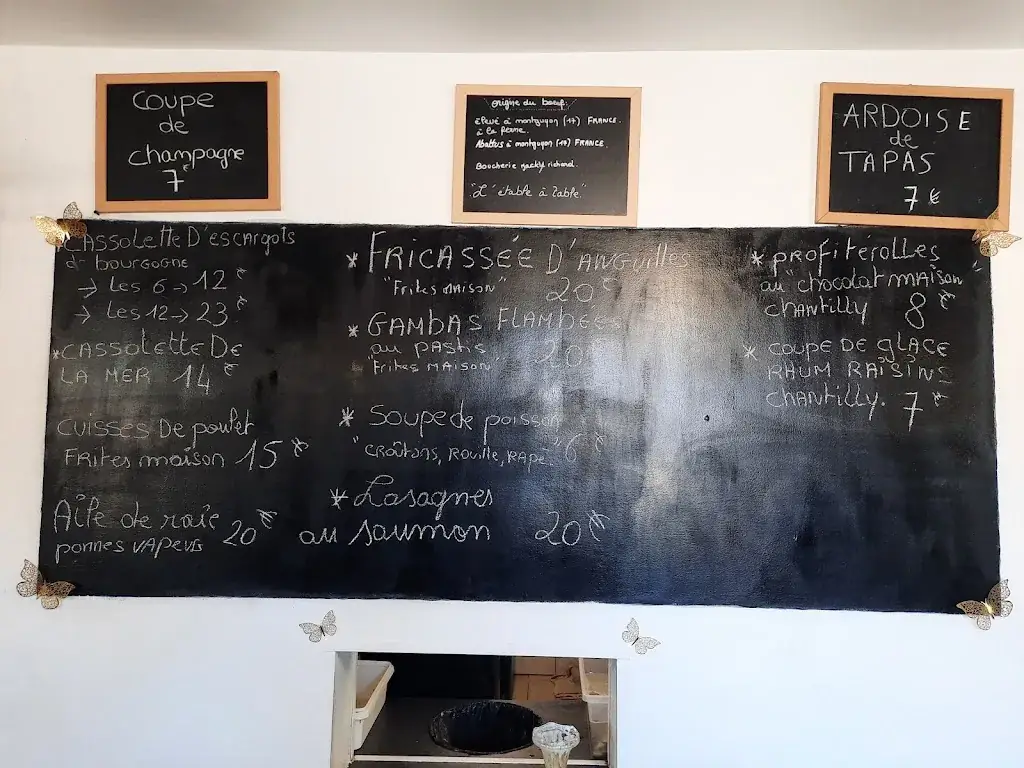 Coupe
de
champagne
7€
origine du boeuf:
élevé à montguyon (17) FRANCE.
à la ferme.
Abattus à montguyon (17) FRANCE.
Boucherie jacky richard.
"L'étable à Table"
ARDOISE
de
TAPAS
7€
CASSOLETTE D'escargots
de bourgogne
→ Les 6 → 12€
→ Les 12 → 23€
*CASSOLETTE DE
LA MER 14€
CUISSES DE poulet
FRITES maison 15€
Aile de raie
pommes VAPEURS 20€
* FRICASSÉE D'ANGUILLES
"Frites maison" 20€
* GAMBAS FLAMBÉES
au PASTIS 20€
"Frites MAISON"
* Soupe de poisson
"CROÛTONS, ROUILLE, RAPÉ" 6€
* Lasagnes
au saumon 20€
* PROFITÉROLLES
au "chocolat maison"
chantilly 8€
* COUPE DE GLACE
RHUM RAISINS
CHANTILLY. 7€